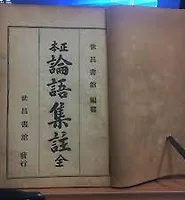 世昌書館 編纂
正本
論語集註 全
世昌書館 發行